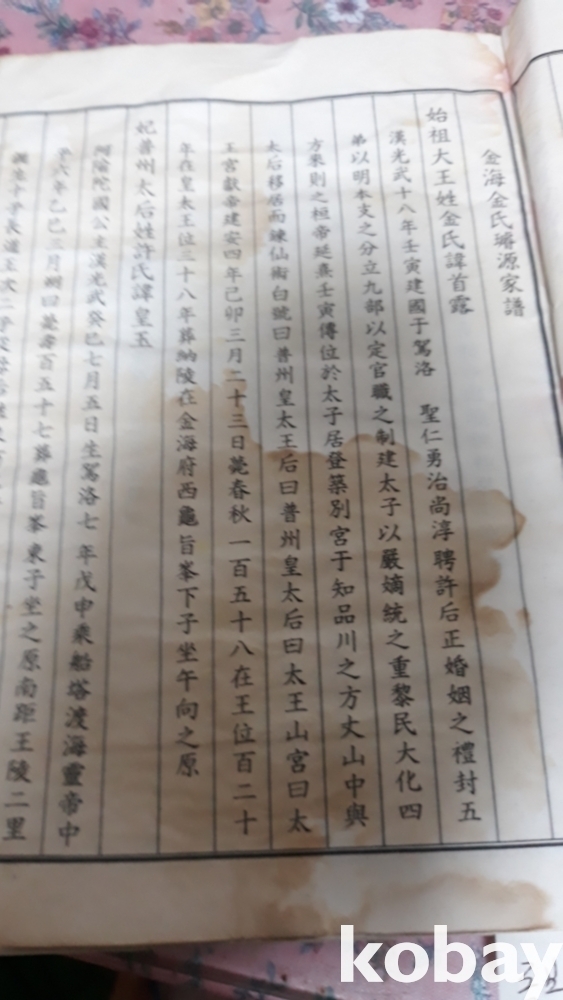 金海金氏璿源家譜
始祖大王姓金氏諱首露
漢光武十八年壬寅建國于駕洛 聖仁勇治尚淳聘許后正婚姻之禮封五
弟以明本支之分立九部以定官職之制建太子以嚴嫡統之重黎民大化四
方來則之桓帝延熹壬寅傳位於太子居登築別宮于知品川之方丈山中與
太后移居而鍊仙術自號曰普州皇太王后曰普州皇太后曰太王山宮曰太
王宮獻帝建安四年己卯三月二十三日薨春秋一百五十八在王位百二十
年在皇太王位三十八年葬納陵在金海府西龜旨峯下子坐午向之原
妃普州太后姓許氏諱皇玉
阿踰陀國公主漢光武癸巳七月五日生駕洛七年戊申乘船塔渡海靈帝中
平六年己巳三月朔日薨壽百五十七葬龜旨峯東子坐之原南距王陵二里
誕生十子長道王次二子
kobay